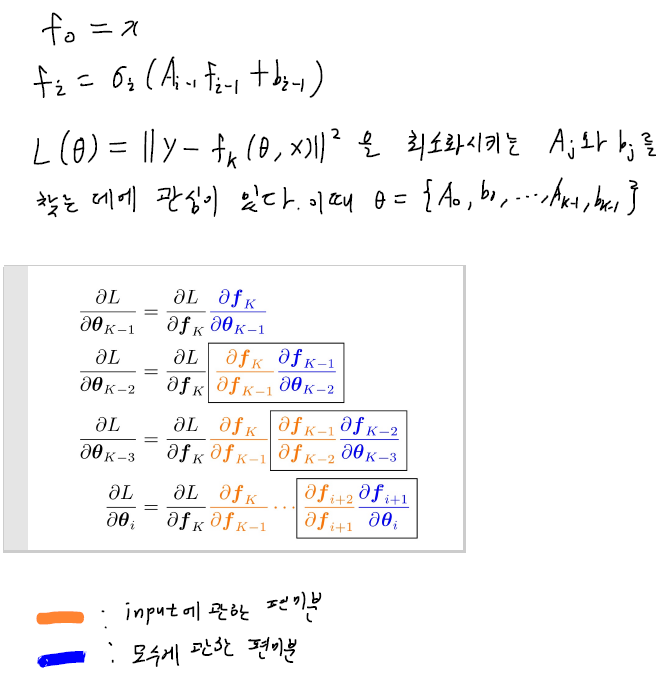 f₀ = x
fᵢ = σᵢ (Aᵢ₋₁ fᵢ₋₁ + bᵢ₋₁)
L(θ) = ||y − f_k (θ, x)||² 을 최소화시키는 A_j와 b_j를
찾는 데에 관심이 있다. 이때 θ = {A₀, b₀, ..., A_{K-1}, b_{K-1}}
∂L/∂θ_{K−1} = ∂L/∂f_K ∂f_K/∂θ_{K−1}
∂L/∂θ_{K−2} = ∂L/∂f_K ∂f_K/∂f_{K−1} ∂f_{K−1}/∂θ_{K−2}
∂L/∂θ_{K−3} = ∂L/∂f_K ∂f_K/∂f_{K−1} ∂f_{K−1}/∂f_{K−2} ∂f_{K−2}/∂θ_{K−3}
∂L/∂θ_i = ∂L/∂f_K ∂f_K/∂f_{K−1} ⋯ ∂f_{i+2}/∂f_{i+1} ∂f_{i+1}/∂θ_i
: input에 관한 편미분
: 모수에 관한 편미분